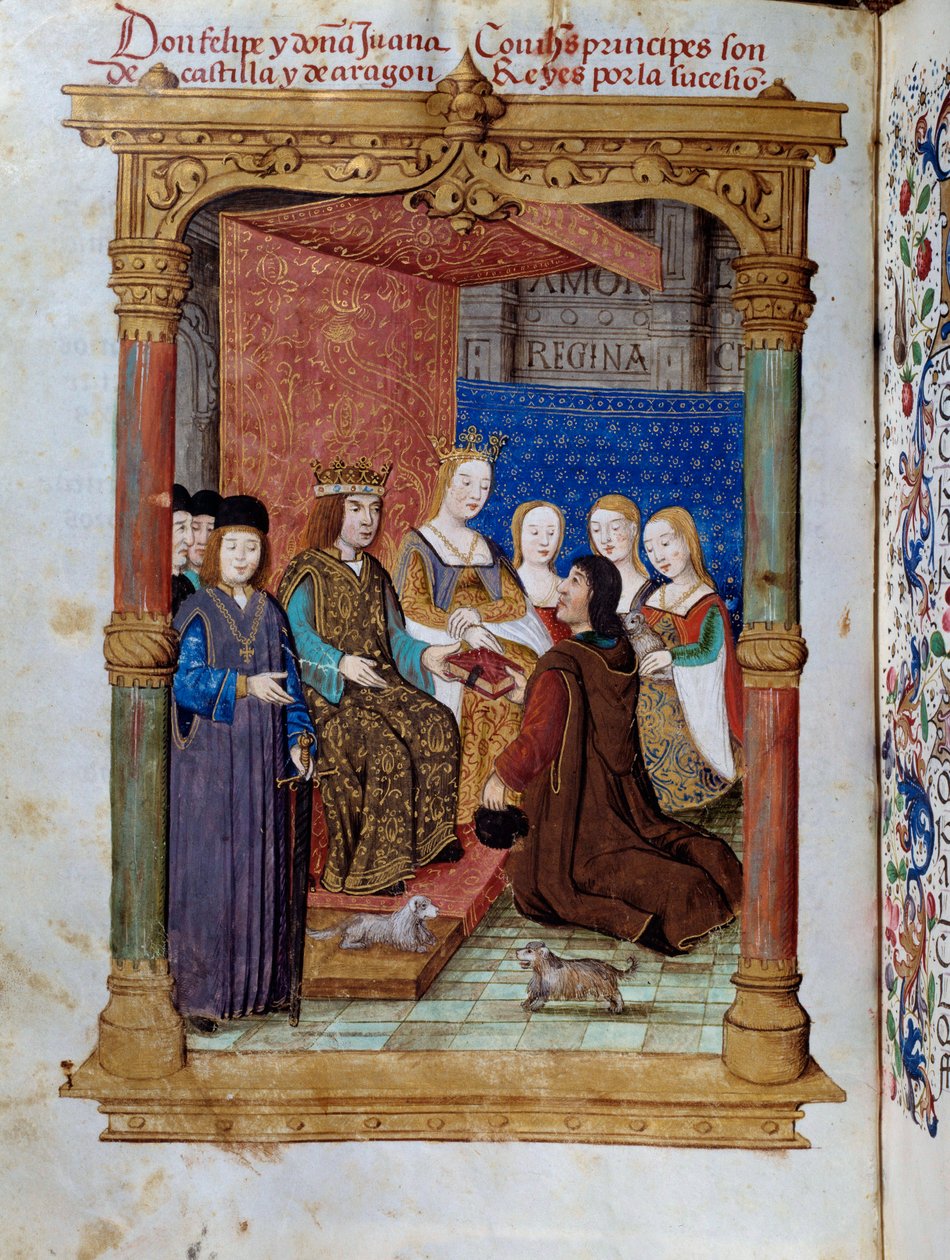 Don felipe y doña Juana Con ihs principes son
de castilla y de aragon Reyes por la sucesio
AMOR
REGINA CE